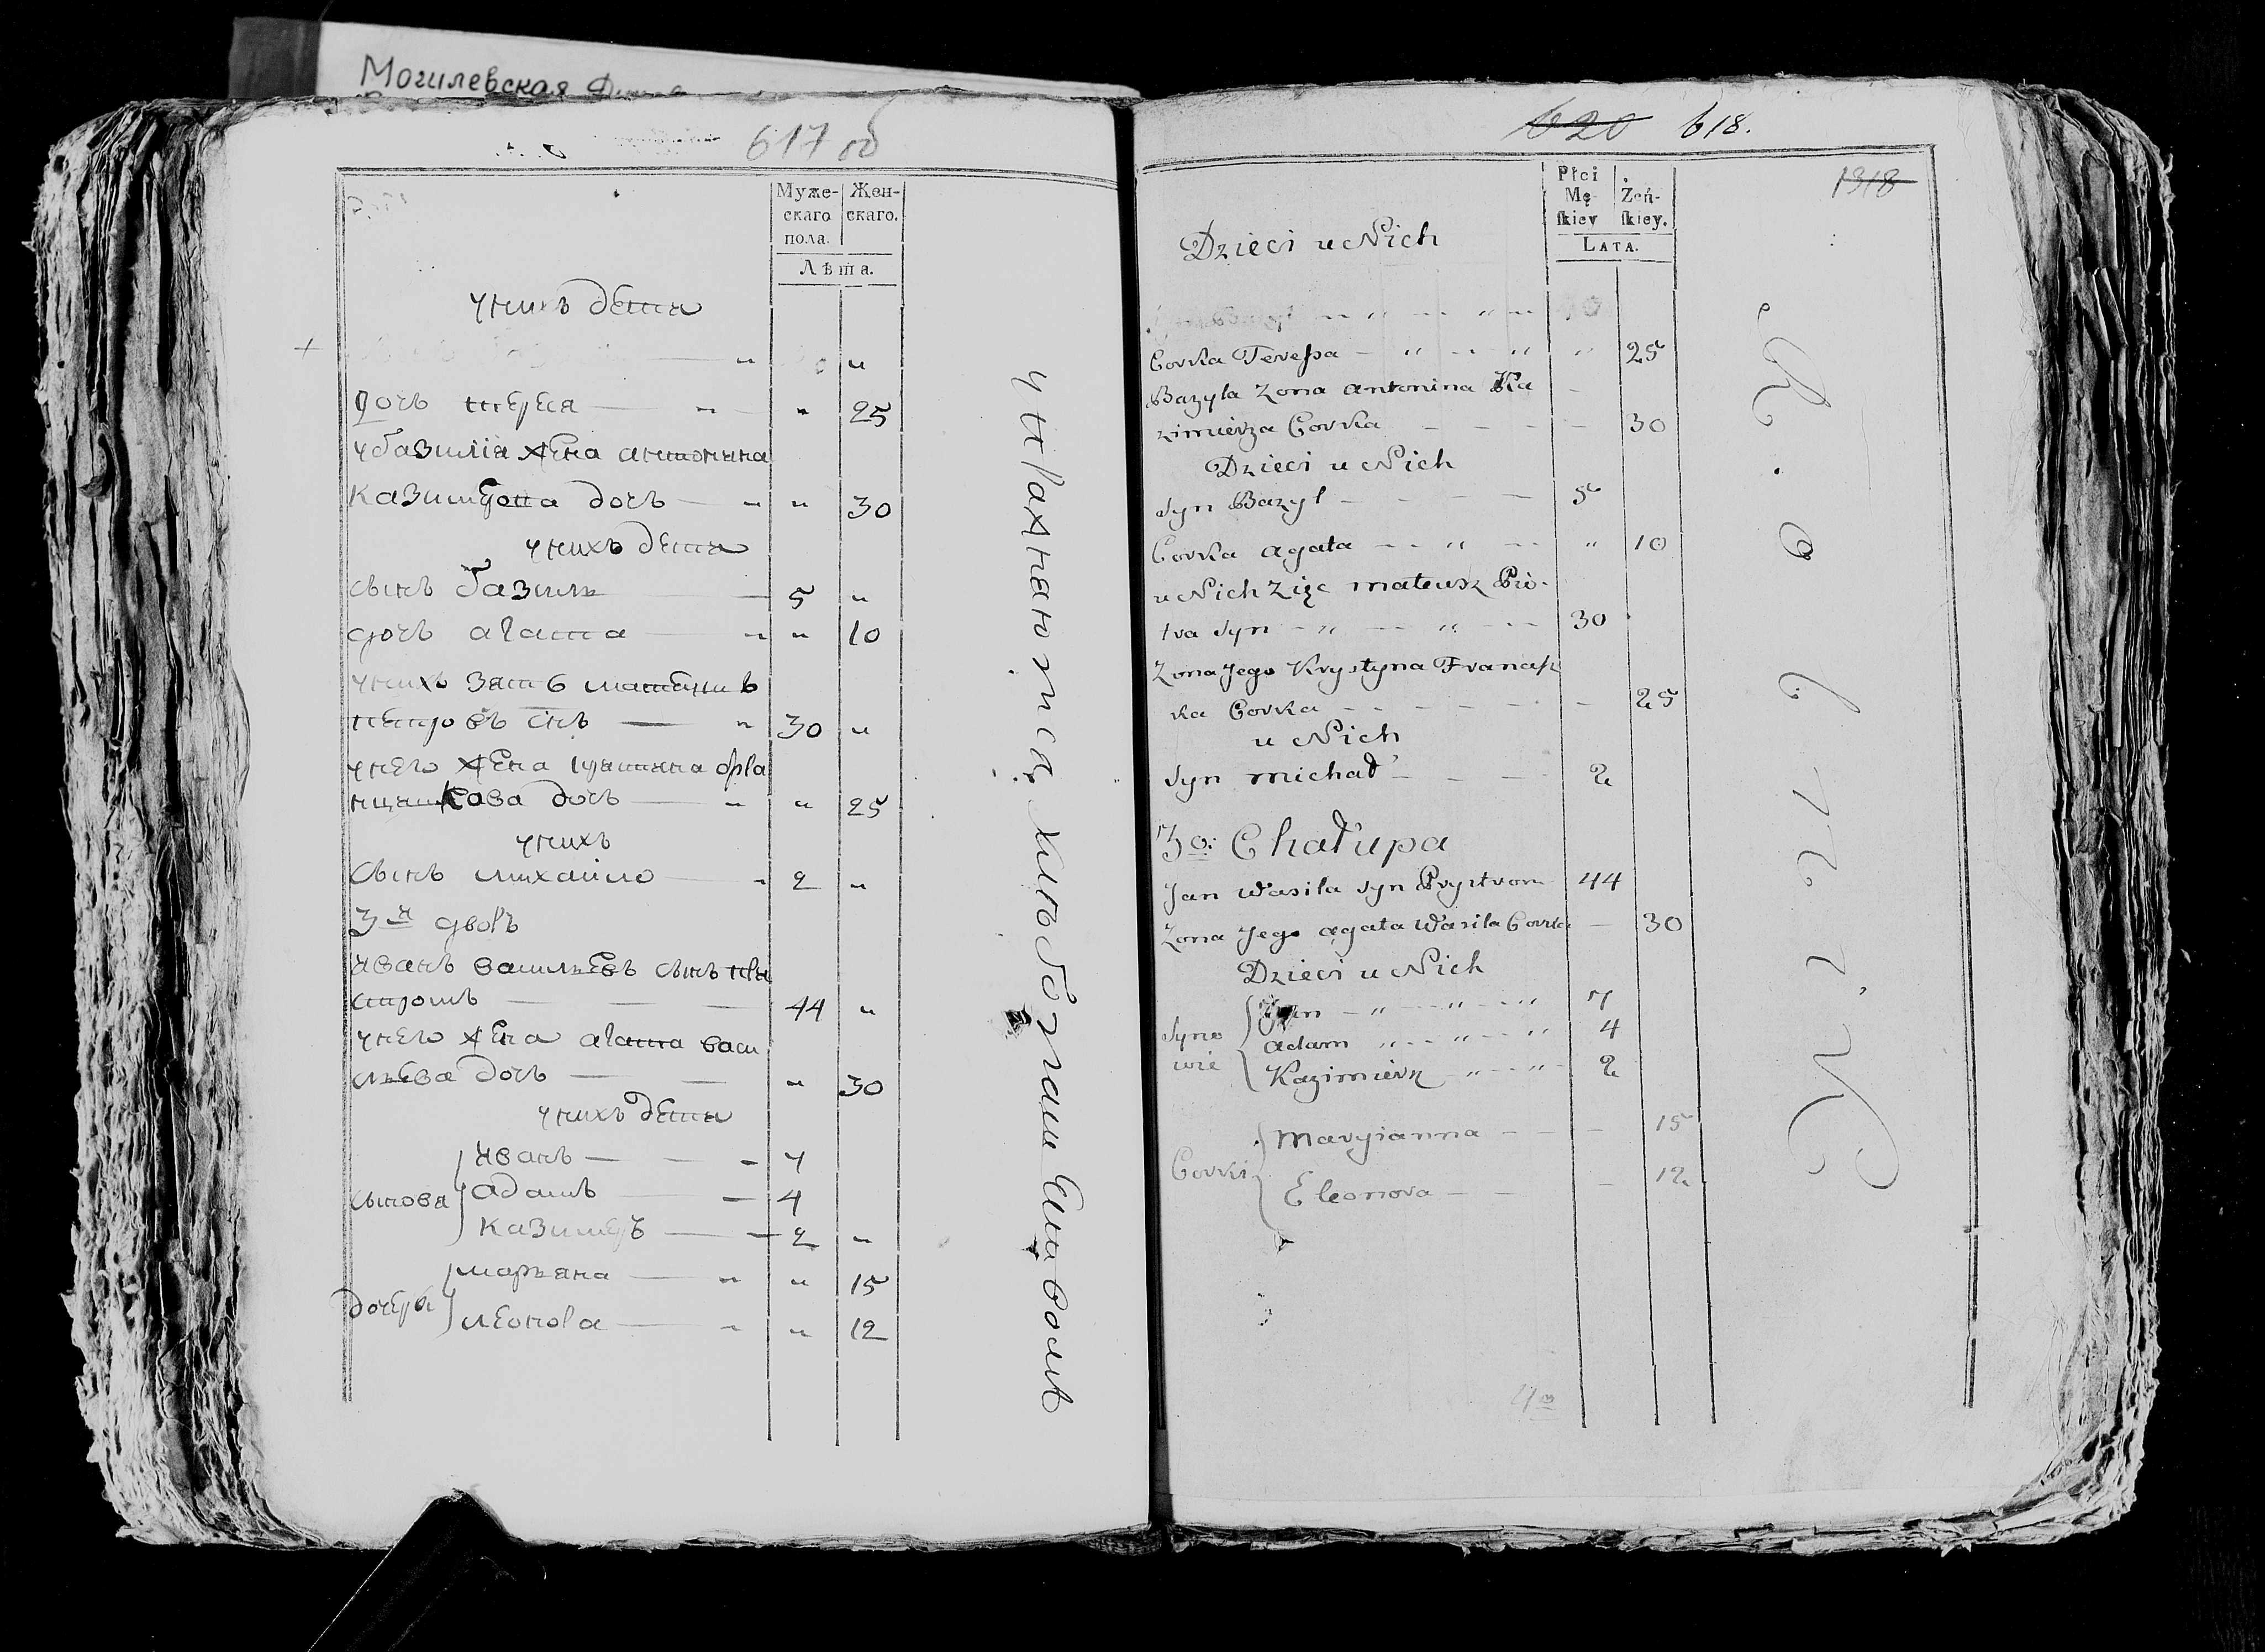 Могилевская
617 об
Муже-
скаго
пола.
Жен-
скаго.
Лѣта.
у нихъ дети
дочь тереса 25
у базилія жена антонина
казимерова дочь 30
у нихъ дети
сынъ базиль 5
дочь агата 10
у нихъ зять матеушъ
петровъ сынъ 30
у него жена
дочь 25
у нихъ
сынъ михайло 2
3й дворъ
иванъ васильевъ сынъ при
стромъ 44
у него жена агата васи
льева дочь 30
у нихъ дети
сыновя
иванъ 7
адамъ 4
казимеръ 2
дочери
марьяна 15
леонора 12
620 618.
1318
Płci
Mę-
skiey
Żeń-
skiey.
LATA.
Dzieci u Nich
Corka Teressa 25
Bazyla Zona antonina Ka
zimierza Corka 30
Dzieci u Nich
Syn Bazyl 5
Corka agata 10
u Nich Zięc mateusz Pio-
tra Syn 30
Zona Jego Krystyna Francisz
ka Corka 25
u Nich
Syn michał 2
3o: Chałupa
Jan Wasila Syn Prystrom 44
Zona Jego agata Wasila Corka 30
Dzieci u Nich
Syno
wie
Jan 7
adam 4
Kazimierz 2
Corki
Maryianna 15
Eleonora 12
4o